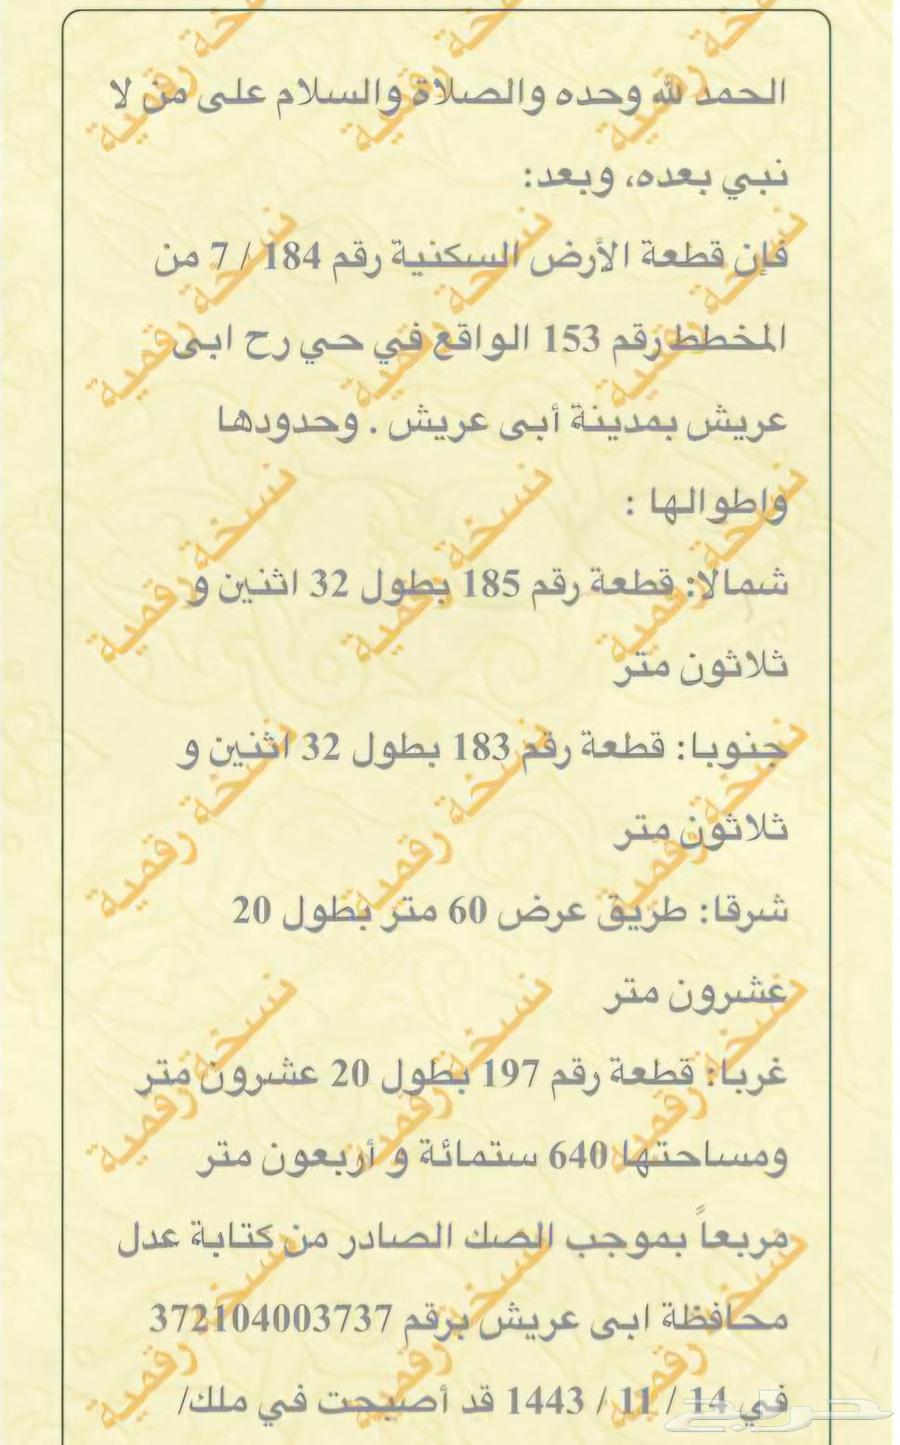 الحمد لله وحده والصلاة والسلام على من لا
نبي بعده، وبعد:
فإن قطعة الأرض السكنية رقم 184 / 7 من
المخطط رقم 153 الواقع في حي رح ابى
عريش بمدينة أبى عريش . وحدودها
واطوالها :
شمالا: قطعة رقم 185 بطول 32 اثنين و
ثلاثون متر
جنوبا: قطعة رقم 183 بطول 32 اثنين و
ثلاثون متر
شرقا: طريق عرض 60 متر بطول 20
عشرون متر
غربا: قطعة رقم 197 بطول 20 عشرون متر
ومساحتها 640 ستمائة و أربعون متر
مربعاً بموجب الصك الصادر من كتابة عدل
محافظة ابى عريش برقم 372104003737
في 14 / 11 / 1443 قد أصبحت في ملك/
نسخة رقمية
حراج